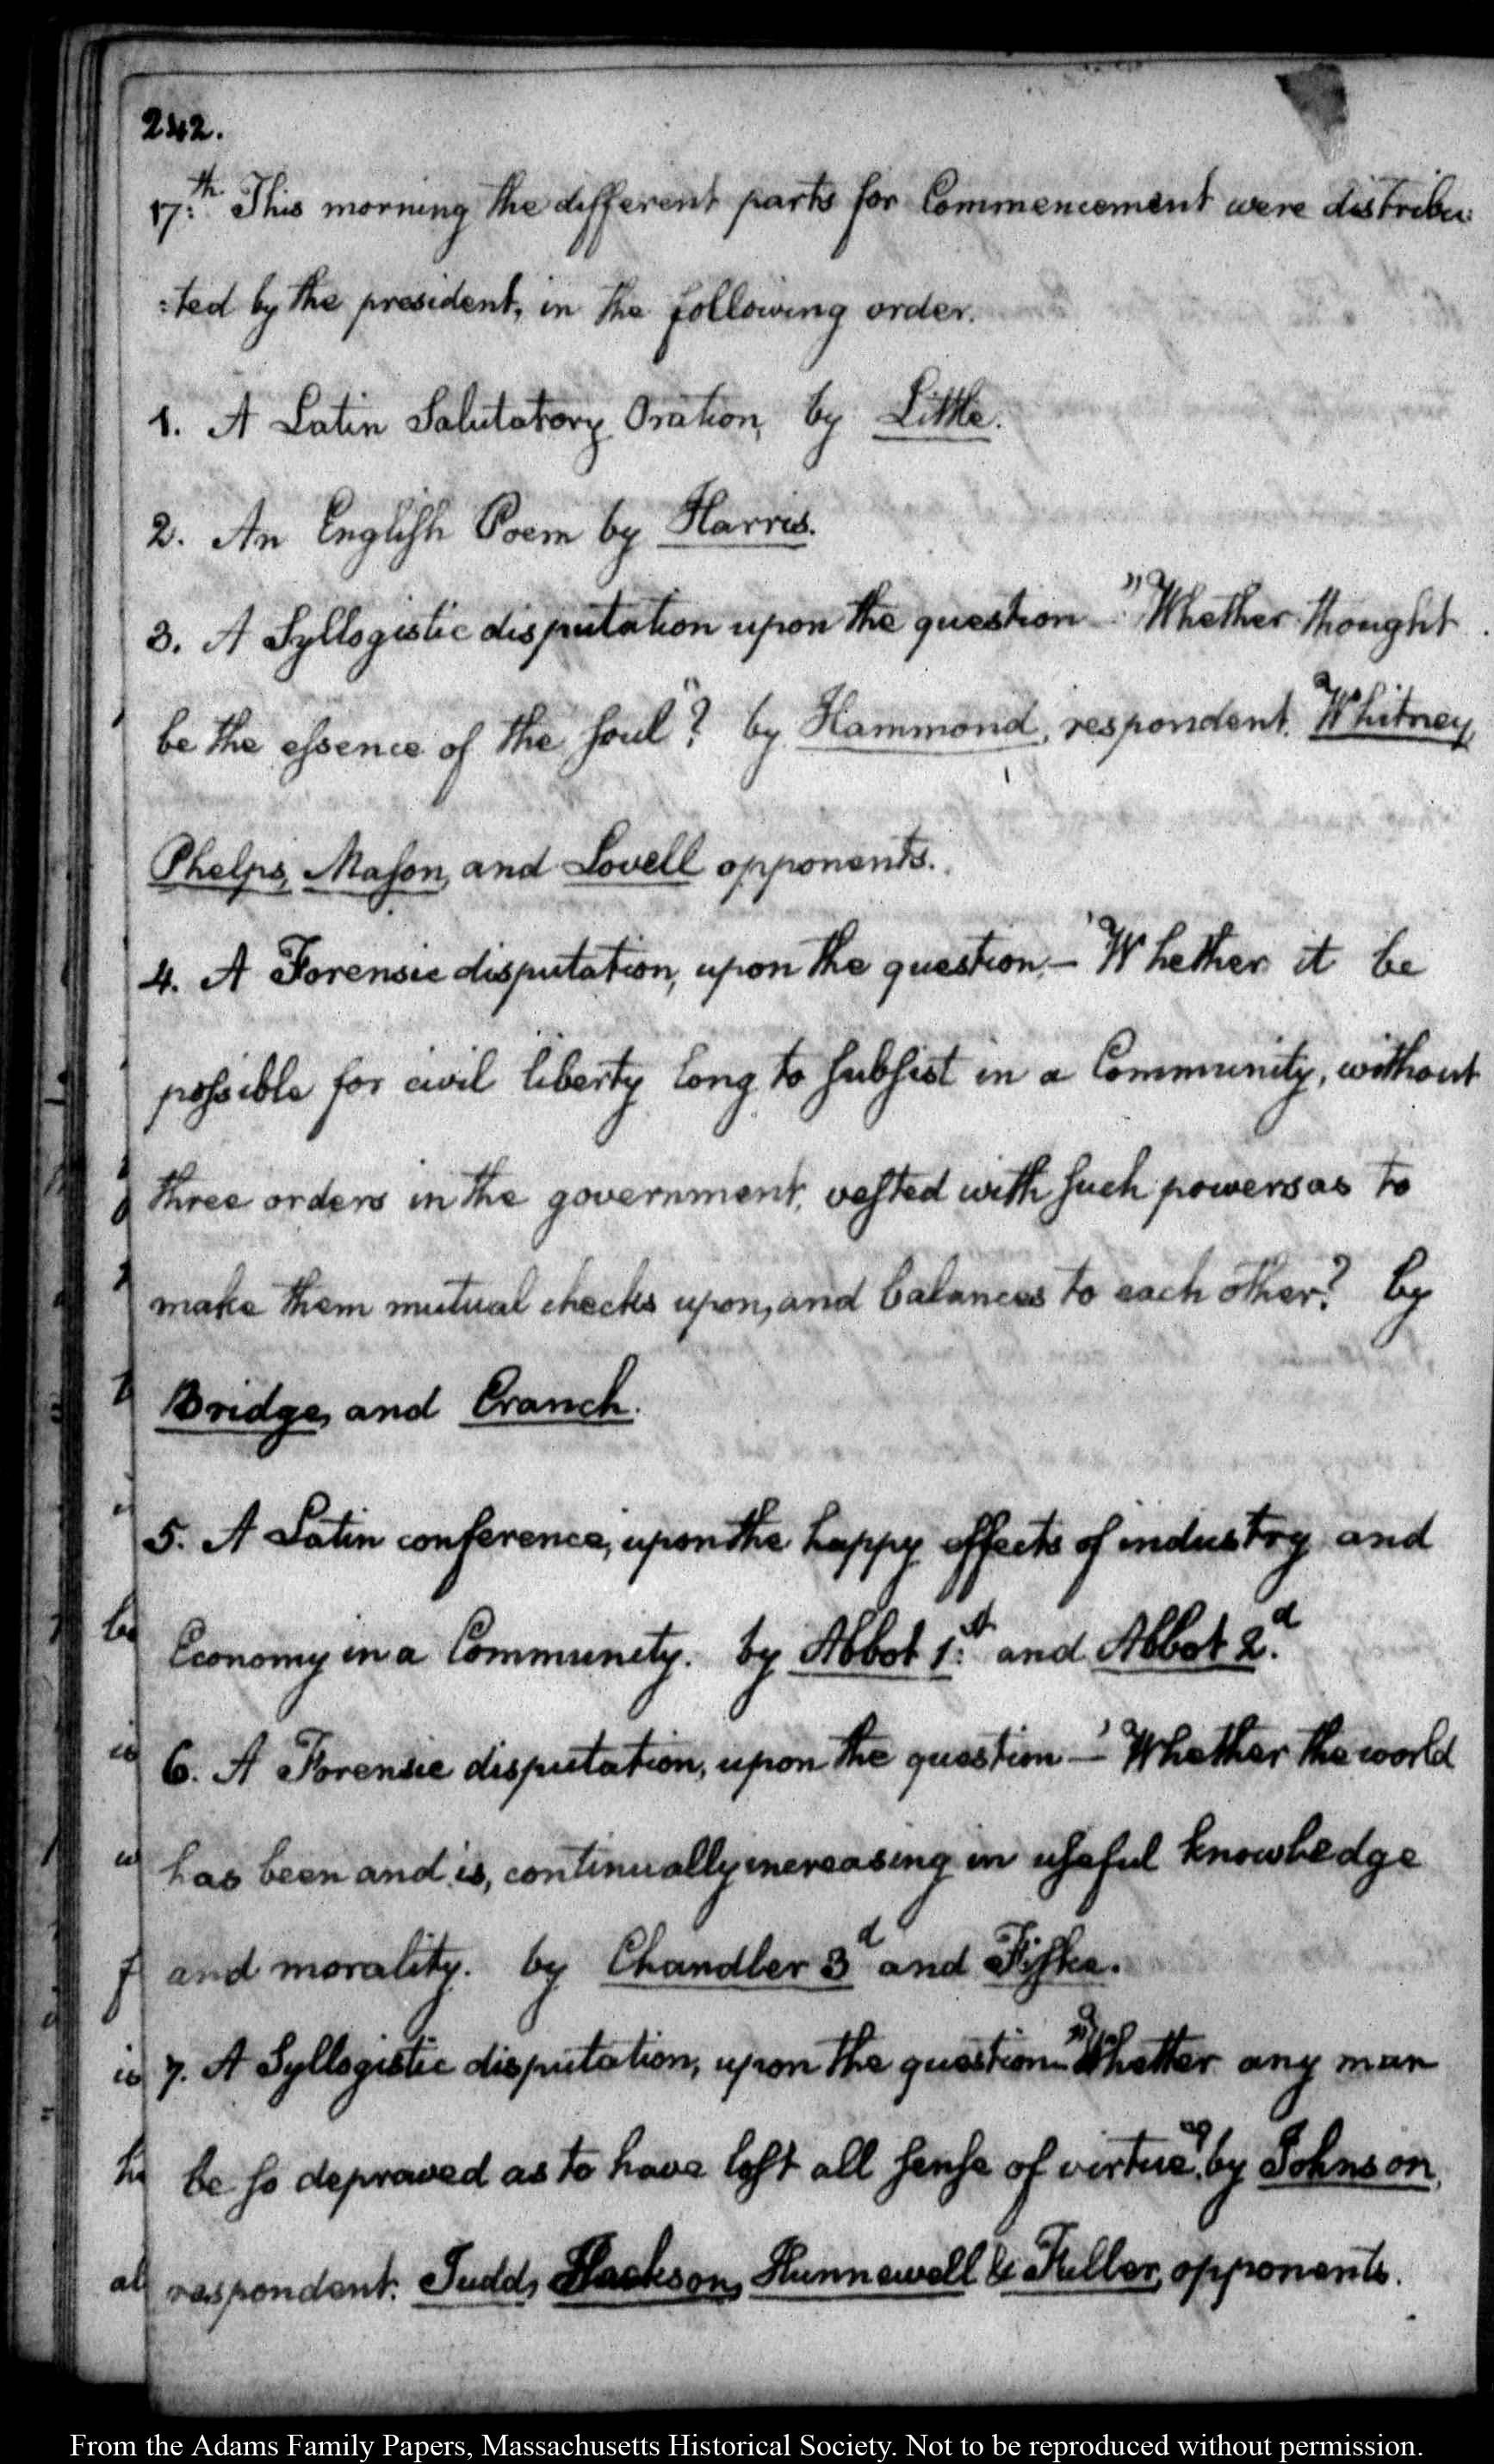 242.
17:th This morning the different parts for Commencement were distribu:
:ted by the president, in the following order.
1. A Latin Salutatory Oration, by Little.
2. An English Poem by Harris.
3. A Syllogistic disputation upon the question — "Whether thought
be the essence of the soul"? by Hammond, respondent. Whitney,
Phelps, Mason, and Lovell opponents.
4. A Forensic disputation, upon the question, — 'Whether it be
possible for civil liberty long to subsist in a Community, without
three orders in the government, vested with such powers as to
make them mutual checks upon, and balances to each other? by
Bridge, and Cranch.
5. A Latin conference, upon the happy effects of industry and
Economy in a Community. by Abbot 1:st and Abbot 2.d
6. A Forensic disputation, upon the question — 'Whether the world
has been and is, continually increasing in useful knowledge
and morality. by Chandler 3d and Fiske.
7. A Syllogistic disputation, upon the question "Whether any man
be so depraved as to have lost all sense of virtue"? by Johnson,
respondent. Judd, Jackson, Hunnewell & Fuller, opponents.
From the Adams Family Papers, Massachusetts Historical Society. Not to be reproduced without permission.